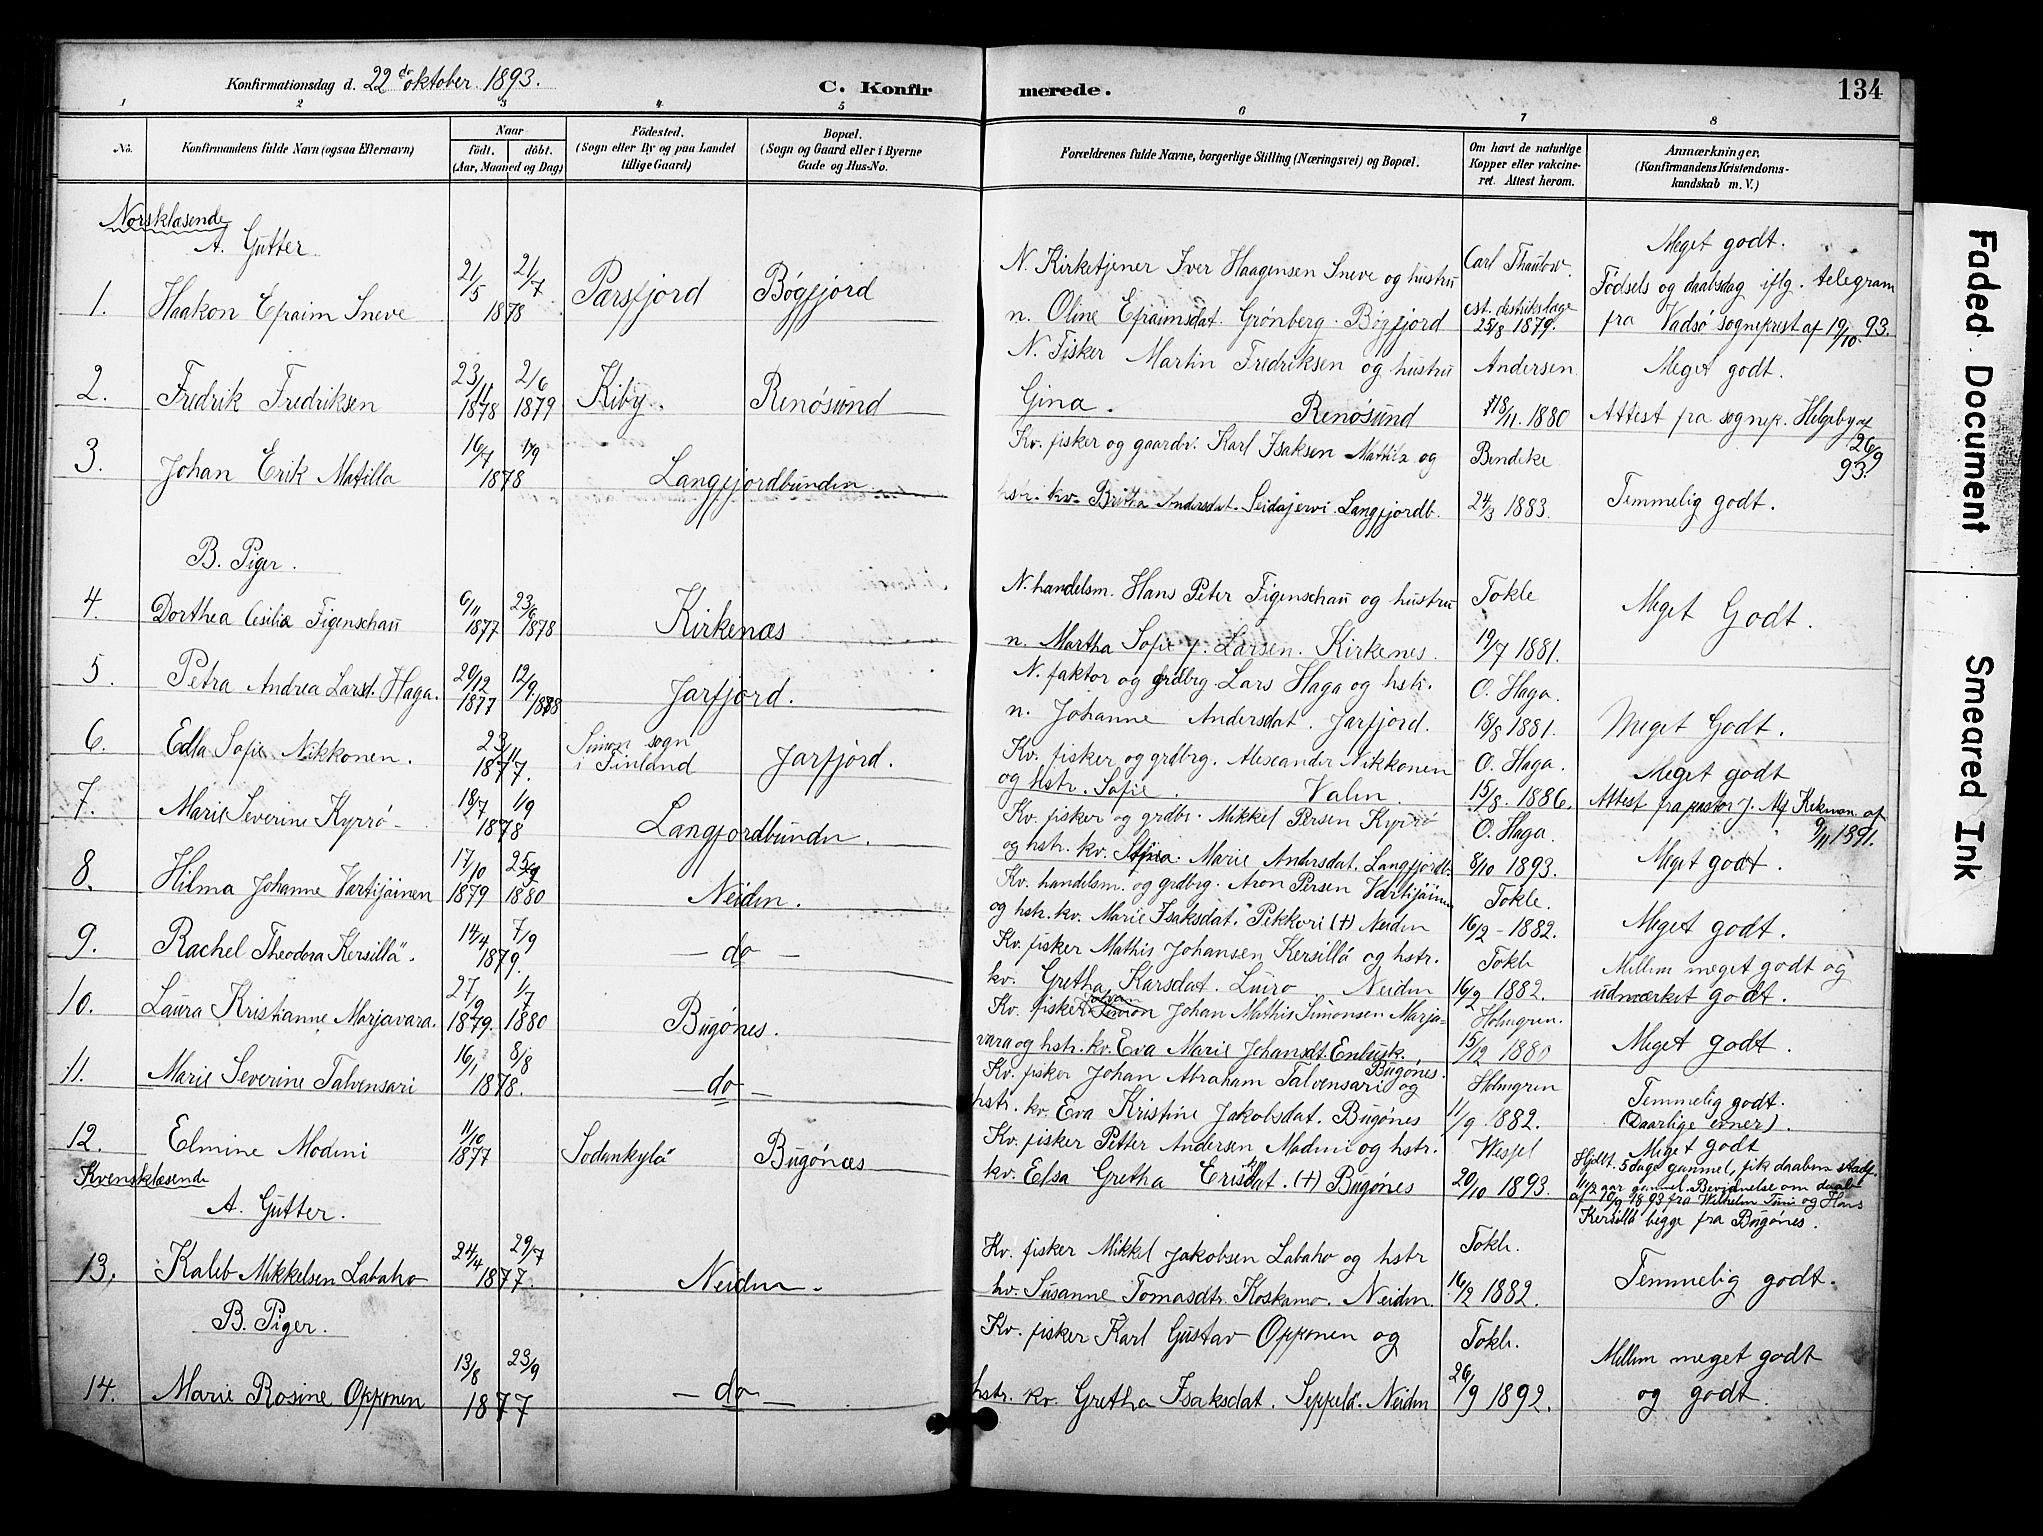 Konfirmationsdag d. 22de oktober 1893.
C. Konfirmerede.
134
1 2 3 4 5 6 7 8
No.
Konfirmandens fulde Navn (ogsaa Efternavn)
Naar
födt. döbt.
(Aar, Maaned og Dag)
Födested.
(Sogn eller By og paa Landet
tillige Gaard)
Bopæl.
(Sogn og Gaard eller i Byerne
Gade og Hus-No.
Forældrenes fulde Navne, borgerlige Stilling (Næringsvei) og Bopæl.
Om havt de naturlige
Kopper eller vakcine-
ret. Attest herom.
Anmærkninger,
(Konfirmandens Kristendoms-
kundskab m. V.)
Norsklæsende
A. Gutter
1. Haakon Efraim Sneve 21/5 21/7 1878 Parsfjord Bøgfjord
N. Kirketjener Iver Haagensen Sneve og hustru
n. Oline Efraimsdat. Grønberg. Bøgfjord
Carl Thaulow.
cst. distrikslæge
25/8 1879.
Meget godt.
Fødsels og daabsdag iflg. telegram
fra Vadsø sogneprest af 19/10 93.
2. Fredrik Fredriksen 23/11 1878 2/6 1879 Kiby. Renøsund
N. Fisker Martin Fredriksen og hustru
Gina. Renøsund
Andersen
18/11. 1880
Meget godt.
Attest fra sognep. Helgeby af
26/9
93.
3. Johan Erik Matilla 16/7 1/9 1878 Langfjordbunden
Kv. fisker og gaardbr. Karl Isaksen Mattila og
hstr. kv. Britha Andersdat. Seidajervi Langfjordb.
Bendike
24/3 1883.
Temmelig godt.
B. Piger.
4. Dorthea Cesilia Figenschau 6/11 1877 23/6 1878 Kirkenæs
N. handelsm. Hans Peter Figenschau og hustru
n. Martha Sofie f. Larsen. Kirkenes.
Tokle
19/7 1881.
Meget Godt.
5. Petra Andrea Larsd. Haga. 20/12 1877 12/9 1878 Jarfjord.
N. faktor og grdbrg. Lars Haga og hstr.
n. Johanne Andersdat. Jarfjord.
O. Haga.
18/8 1881.
Meget Godt.
6. Edla Sofie Nikkonen. 23/11 1877. Simon sogn
i Finland Jarfjord.
Kv. fisker og grdbrg. Alexander Nikkonen
og hstr. Sofie Valin.
O. Haga.
15/8. 1886.
Meget godt
Attest fra pastor J. Alf. Kekman af
9/11 1891.
7. Marie Severine Kyrrø 18/7 1/9 1878 Langfjordbunden.
Kv. fisker og grdbr. Mikkel Persen Kyrrø
og hstr. kv. Marie Andersdat. Langfjordb.
O. Haga
8/10 1893.
Meget godt.
8. Hilma Johanne Vartijäinen 17/10 1879 25/4 1880 Neiden.
Kv. handelsm. og grdbrg. Aron Persen Vartijäinen
og hstr. kv. Marie Isaksdat. Pekkori (+) Neiden
Tokle.
16/2 - 1882.
Meget godt.
9. Rachel Theodora Kersillä. 14/4 7/9 1879. - do -
Kv. fisker Mathis Johansen Kersillä og hstr.
kv. Gretha Karsdat. Luiro Neiden
Tokle
16/2 1882.
Mellem meget godt og
udmærket godt.
10. Laura Kristianne Marjavara. 27/9 1879. 1/7 1880 Bugönes.
Kv. fisker Johan Mathis Simonsen Marja-
vara og hstr. kv. Eva Marie Johansdt. Enbusk.
Bugönes.
Holmgren.
15/12 1880
Meget godt.
11. Marie Severine Talvensari 16/1 8/8 1878. - do -
Kv. fisker Johan Abraham Talvensari og
hstr. kv. Eva Kristine Jakobsdat. Bugönes
Holmgren
11/9 1882.
Temmelig godt.
(Daarlige evner).
12. Elmine Modini 11/10 1877 Sodankylä Bugönæs
Kv. fisker Petter Andersen Madini og hstr.
kv. Elsa Gretha Eriksdat. (+) Bugönes
Wessel
20/10 1893.
Meget godt
Hjdbt. 5 dage gammel, fik daaben stadf.
1 1/2 aar gammel. Bevidnelse om daab
af 10/9 1893 fra Wilhelm Tini og Hans
Kersillä begge fra Bugönes.
Kvensklæsende
A. Gutter.
13. Kaleb Mikkelsen Labaho 24/4 29/7 1877. Neiden.
Kv. fisker Mikkel Jakobsen Labaho og hstr
kv. Susanne Tomasdtr. Koskamo. Neiden.
Tokle.
16/2 1882.
Temmelig godt.
B. Piger.
14. Marie Rosine Opponen 13/8 23/9 1877 - do -
Kv. fisker Karl Gustav Opponen og
hstr. kv. Gretha Isaksdat. Seppelä. Neiden
Tokle.
26/9 1892.
Mellem meget godt
og godt.
Faded Document
Smeared Ink